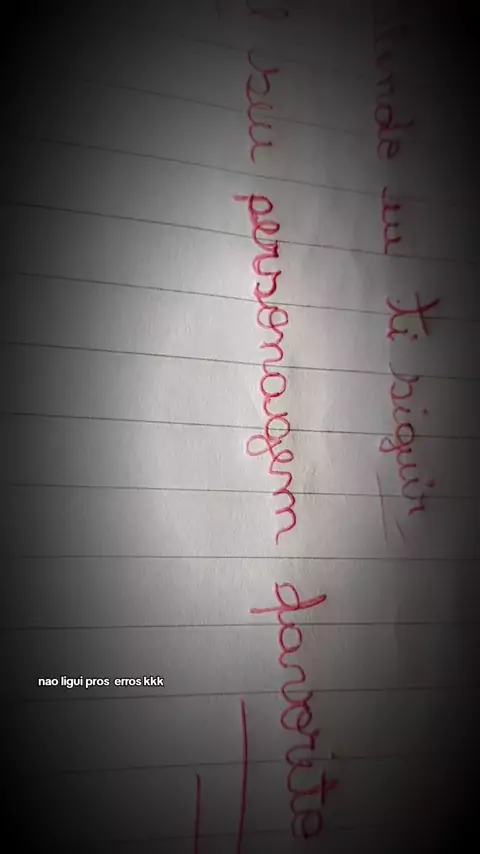 eu ti siguir
seu personagem favorito
nao ligui pros erros kkk